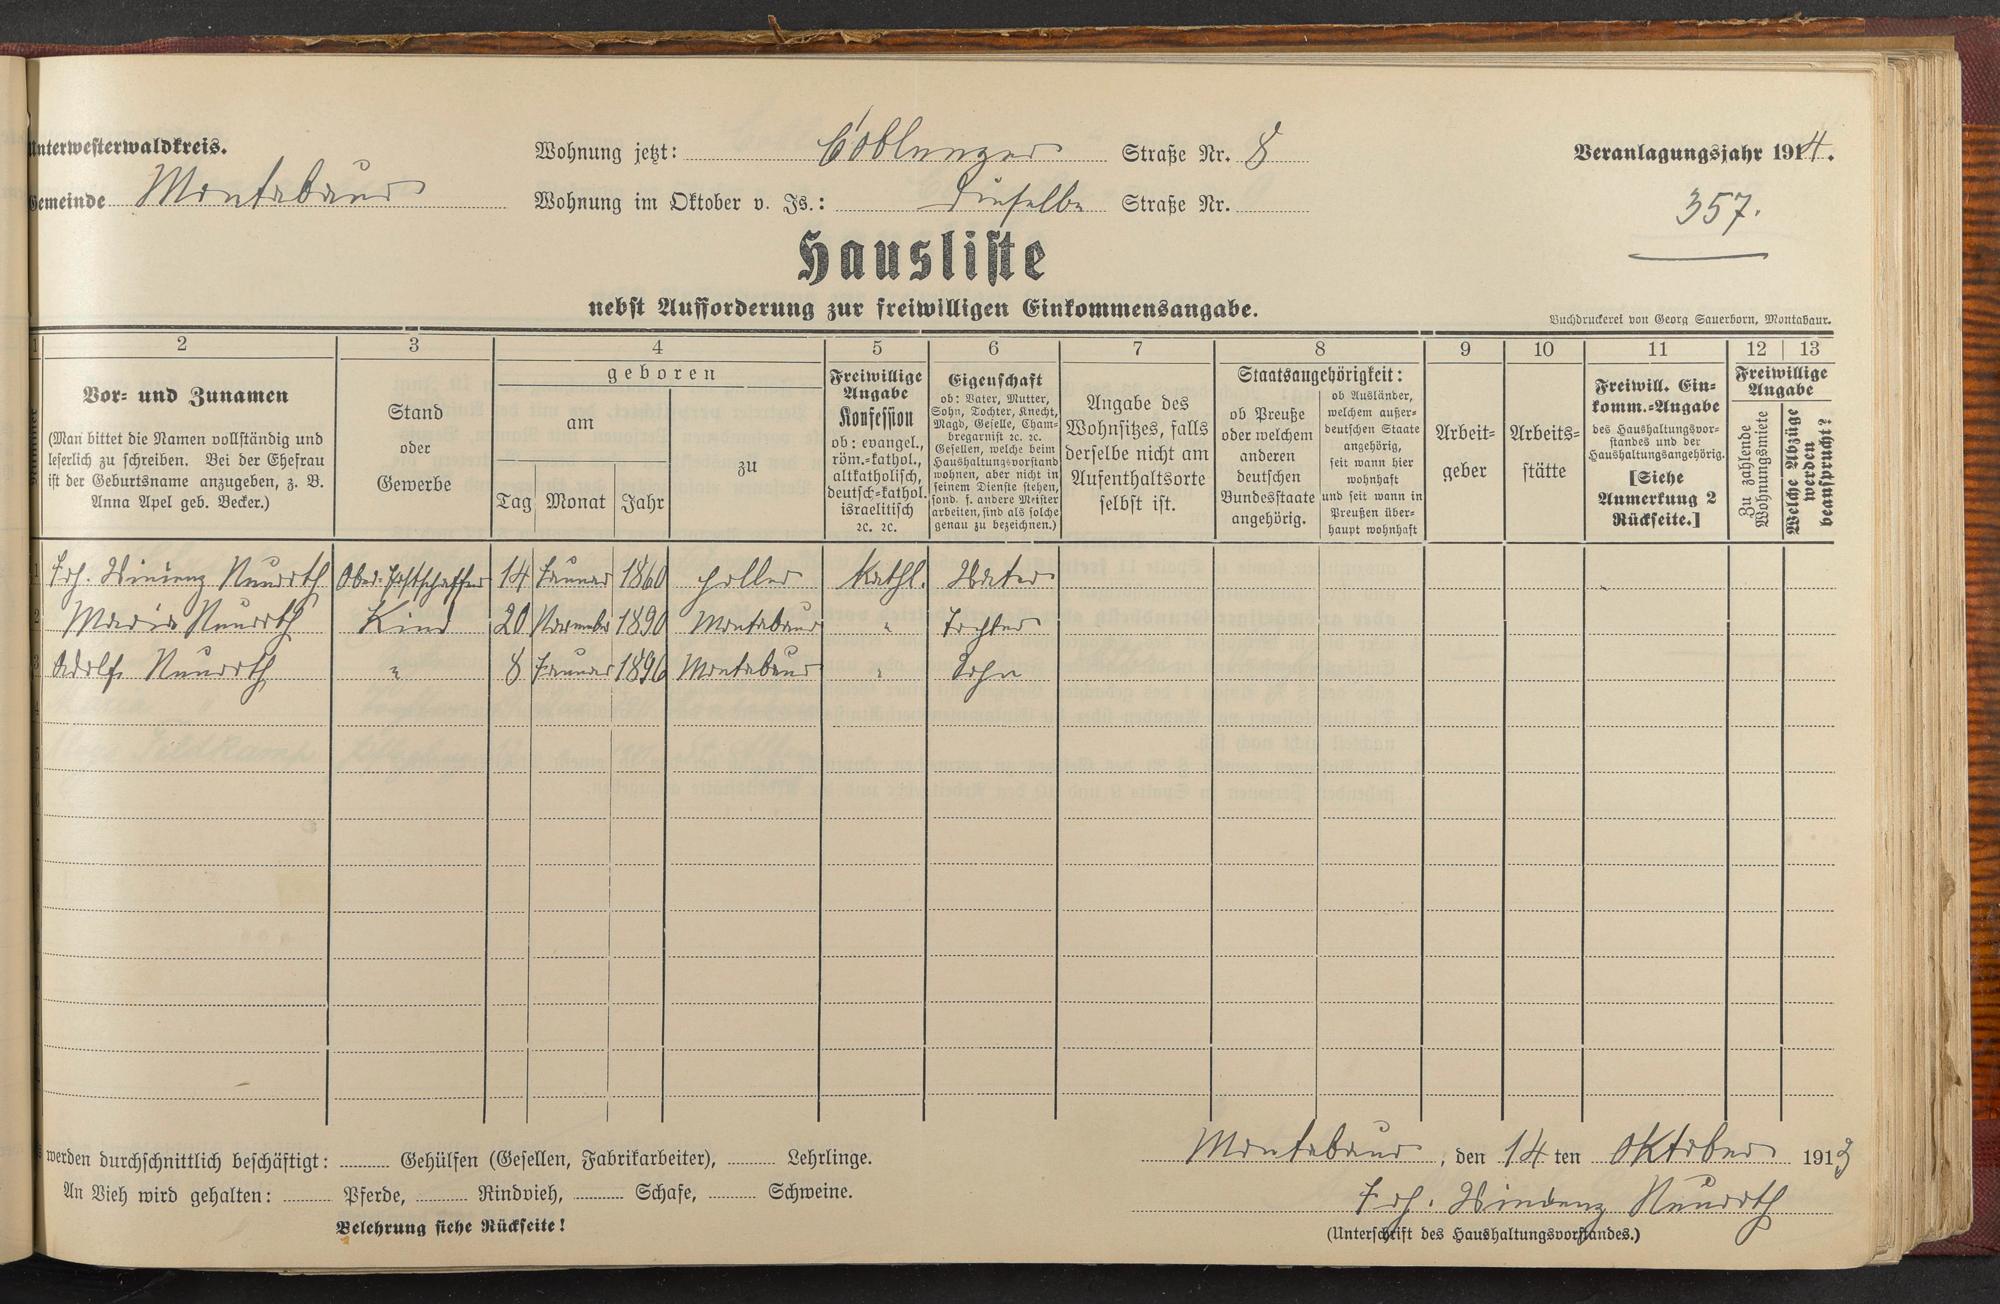 Unterwesterwaldkreis.
Wohnung jetzt: Coblenzer Straße Nr. 8
Veranlagungsjahr 1914.
Gemeinde Montabaur
Wohnung im Oktober v. Js.: Dieselbe Straße Nr.
357.
Hausliste
nebst Aufforderung zur freiwilligen Einkommensangabe.
Buchdruckerei von Georg Sauerborn, Montabaur.
1 2 3 4 5 6 7 8 9 10 11 12 13
Nummer
Vor- und Zunamen
(Man bittet die Namen vollständig und
leserlich zu schreiben. Bei der Ehefrau
ist der Geburtsname anzugeben, z. B.
Anna Apel geb. Becker.)
Stand
oder
Gewerbe
geboren
am
Tag Monat Jahr
zu
Freiwillige
Angabe
Konfession
ob: evangel.,
röm.-kathol.,
altkatholisch,
deutsch-kathol.
israelitisch
ꝛc. ꝛc.
Eigenschaft
ob: Vater, Mutter,
Sohn, Tochter, Knecht,
Magd, Geselle, Cham-
bregarnist ꝛc. ꝛc.
Gesellen, welche beim
Haushaltungsvorstand
wohnen, aber nicht in
seinem Dienste stehen,
sond. f. andere Meister
arbeiten, sind als solche
genau zu bezeichnen.)
Angabe des
Wohnsitzes, falls
derselbe nicht am
Aufenthaltsorte
selbst ist.
Staatsangehörigkeit:
ob Preuße
oder welchem
anderen
deutschen
Bundesstaate
angehörig.
ob Ausländer,
welchem außer-
deutschen Staate
angehörig,
seit wann hier
wohnhaft
und seit wann in
Preußen über-
haupt wohnhaft
Arbeit-
geber
Arbeits-
stätte
Freiwill. Ein-
komm.-Angabe
des Haushaltungsvor-
standes und der
Haushaltungsangehörig.
[Siehe
Anmerkung 2
Rückseite.]
Freiwillige
Angabe
Zu zahlende
Wohnungsmiete
Welche Abzüge
werden
beansprucht?
1 Joh. Vinzenz Neuroth Ober-Postschaffner 14 Januar 1860 Holler Kathl. Vater
2 Maria Neuroth Kind 20 November 1890 Montabaur " Tochter
3 Adolf Neuroth " 8 Januar 1896 Montabaur " Sohn
werden durchschnittlich beschäftigt: Gehülfen (Gesellen, Fabrikarbeiter), Lehrlinge.
Montabaur, den 14 ten Oktober 1913
An Vieh wird gehalten: Pferde, Rindvieh, Schafe, Schweine.
Joh. Vinzenz Neuroth
Belehrung siehe Rückseite!
(Unterschrift des Haushaltungsvorstandes.)